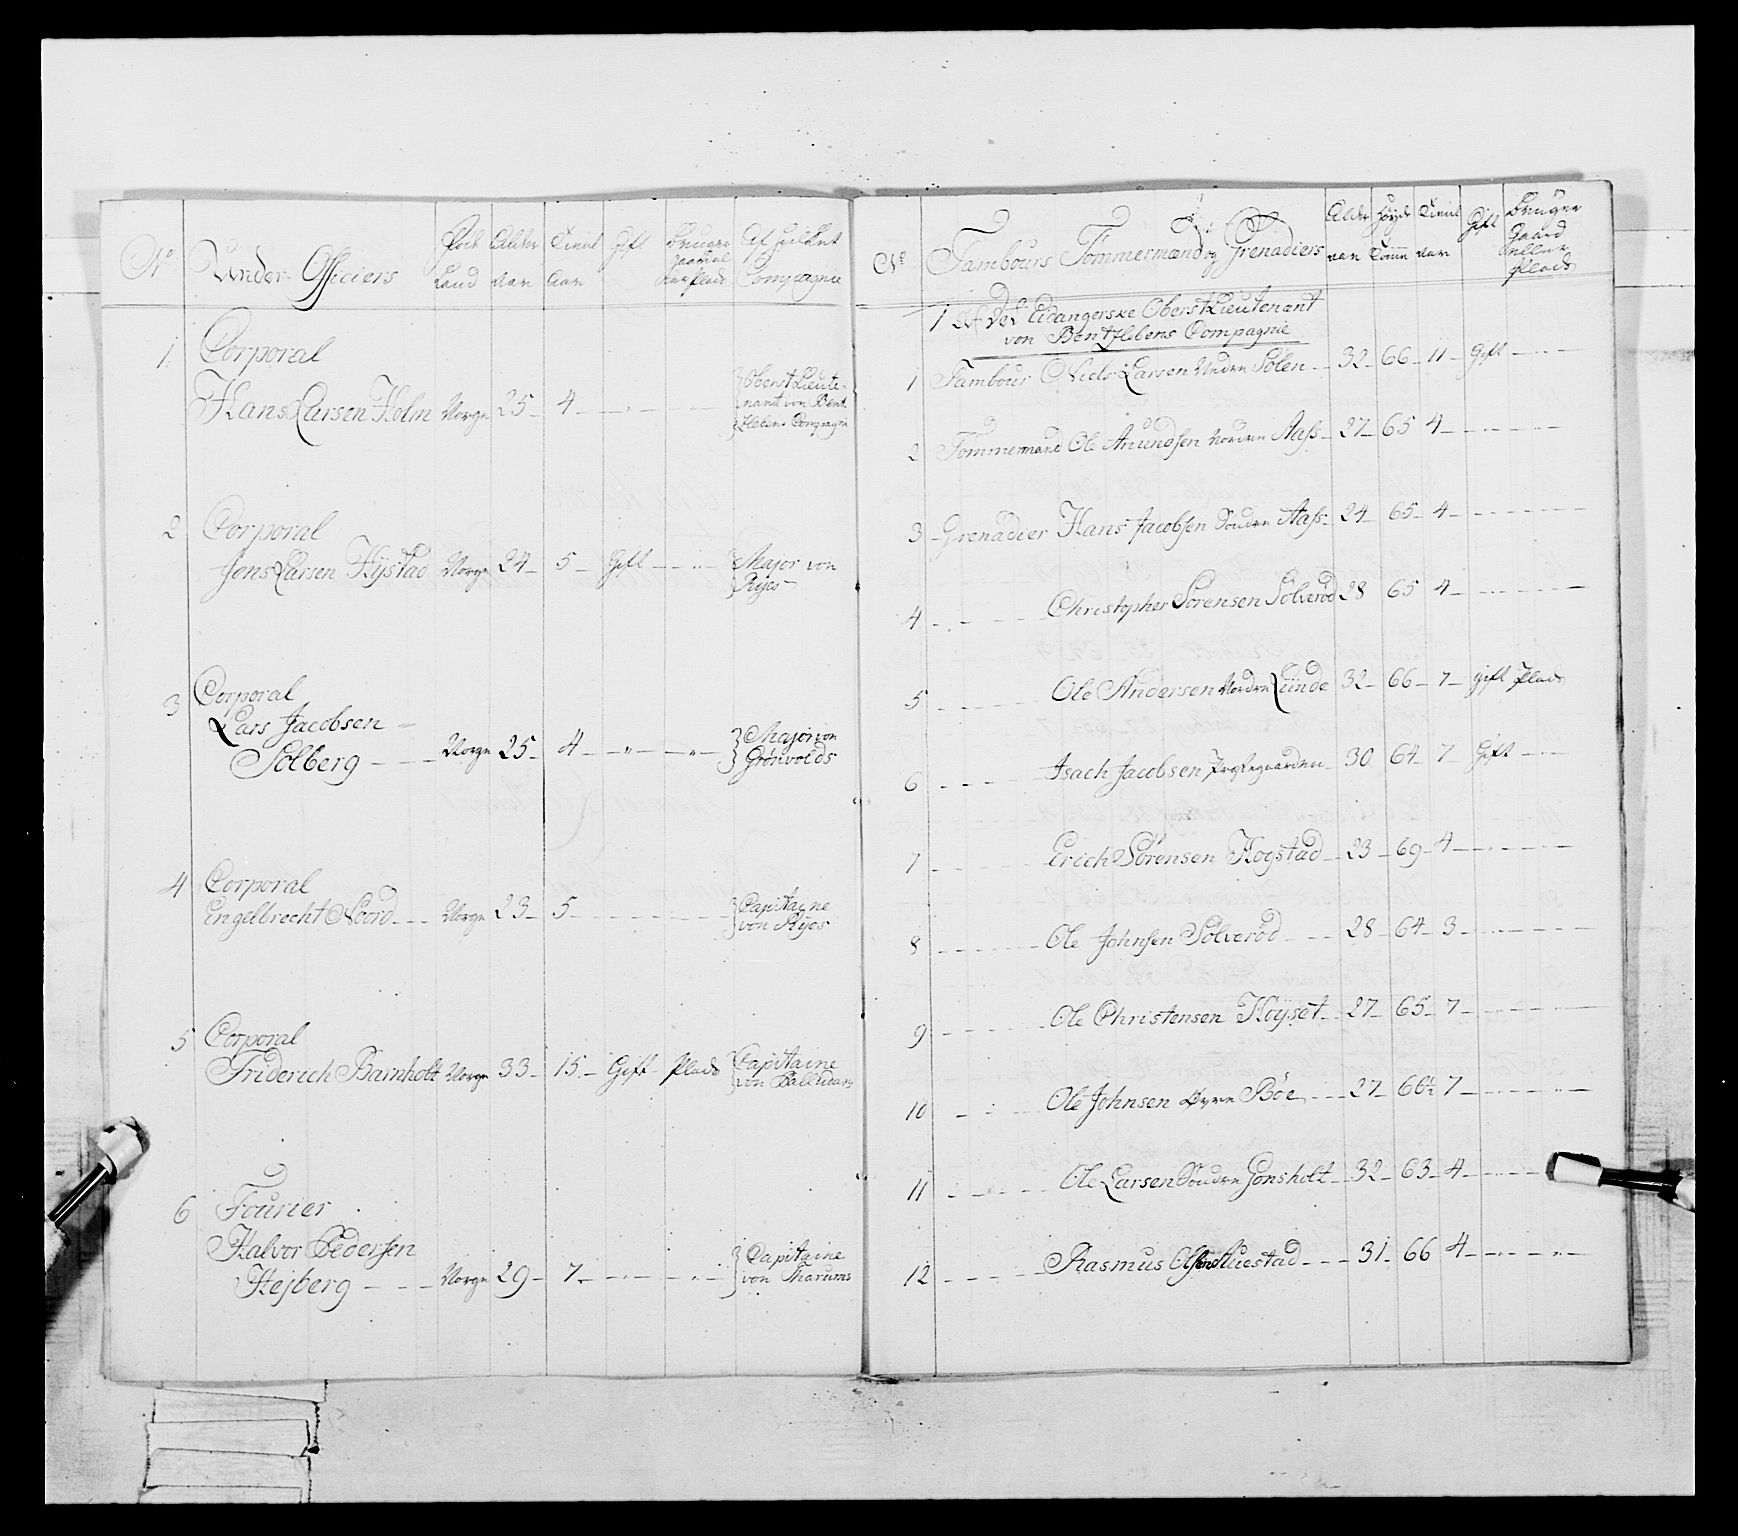 No
Under Officiers
Föde Land
Alder Aar
Tient Aar
Gift
Bruger gaard eller plads
Af hvilket Compagnie
1. Corporal
Hans Larsen Holm Norge 25 4 Oberst Lieute-
nant von Bent-
zlebens Compagnie
2 Corporal
Jens Larsen Hystad Norge 24 5 Gift Major von
Ryes
3 Corporal
Lars Jacobsen
Solberg Norge 25 4 Major von
Grönvolds
4 Corporal
Engelbrecht Noord Norge 23 5 Capitaine
von Ryes
5 Corporal
Friderich Barnholt Norge 33 15 Gift Plads Capitaine
von
6 Fourier
Halvor Pedersen
Hejberg Norge 29 7 Capitaine
von Tharums
No
Tambours Tömmermænd og Grenadiers
Alder aar
Høyde Tomme
Tient aar
Gift
Bruger Gaard eller Plads
1 Af Det Eidangerske Oberst Lieutenant
von Bentzlebens Compagnie
1 Tambour Niels Larsen Nedre Solen 32 66 11 Gift
2 Tömmermand Ole Anundsen Nordre Aass 27 65 4
3 Grenadier Hans Jacobsen Söndre Aass 24 65 4
4 Christopher Sörensen Sölveröd 28 65 4
5 Ole Andersen Nordre Lunde 32 66 7 gift Plads
6 Isach Jacobsen Præstegaarden 30 64 7 Gift
7 Erich Sörensen Hogstad 23 69 4
8 Ole Johnsen Sölveröd 28 64 3
9 Ole Christensen Höyset 27 65 7
10 Ole Johnsen Övre Böe 27 66½ 7
11 Ole Larsen Söndre Gonsholt 32 63 4
12 Rasmus Olsen 31 66 4